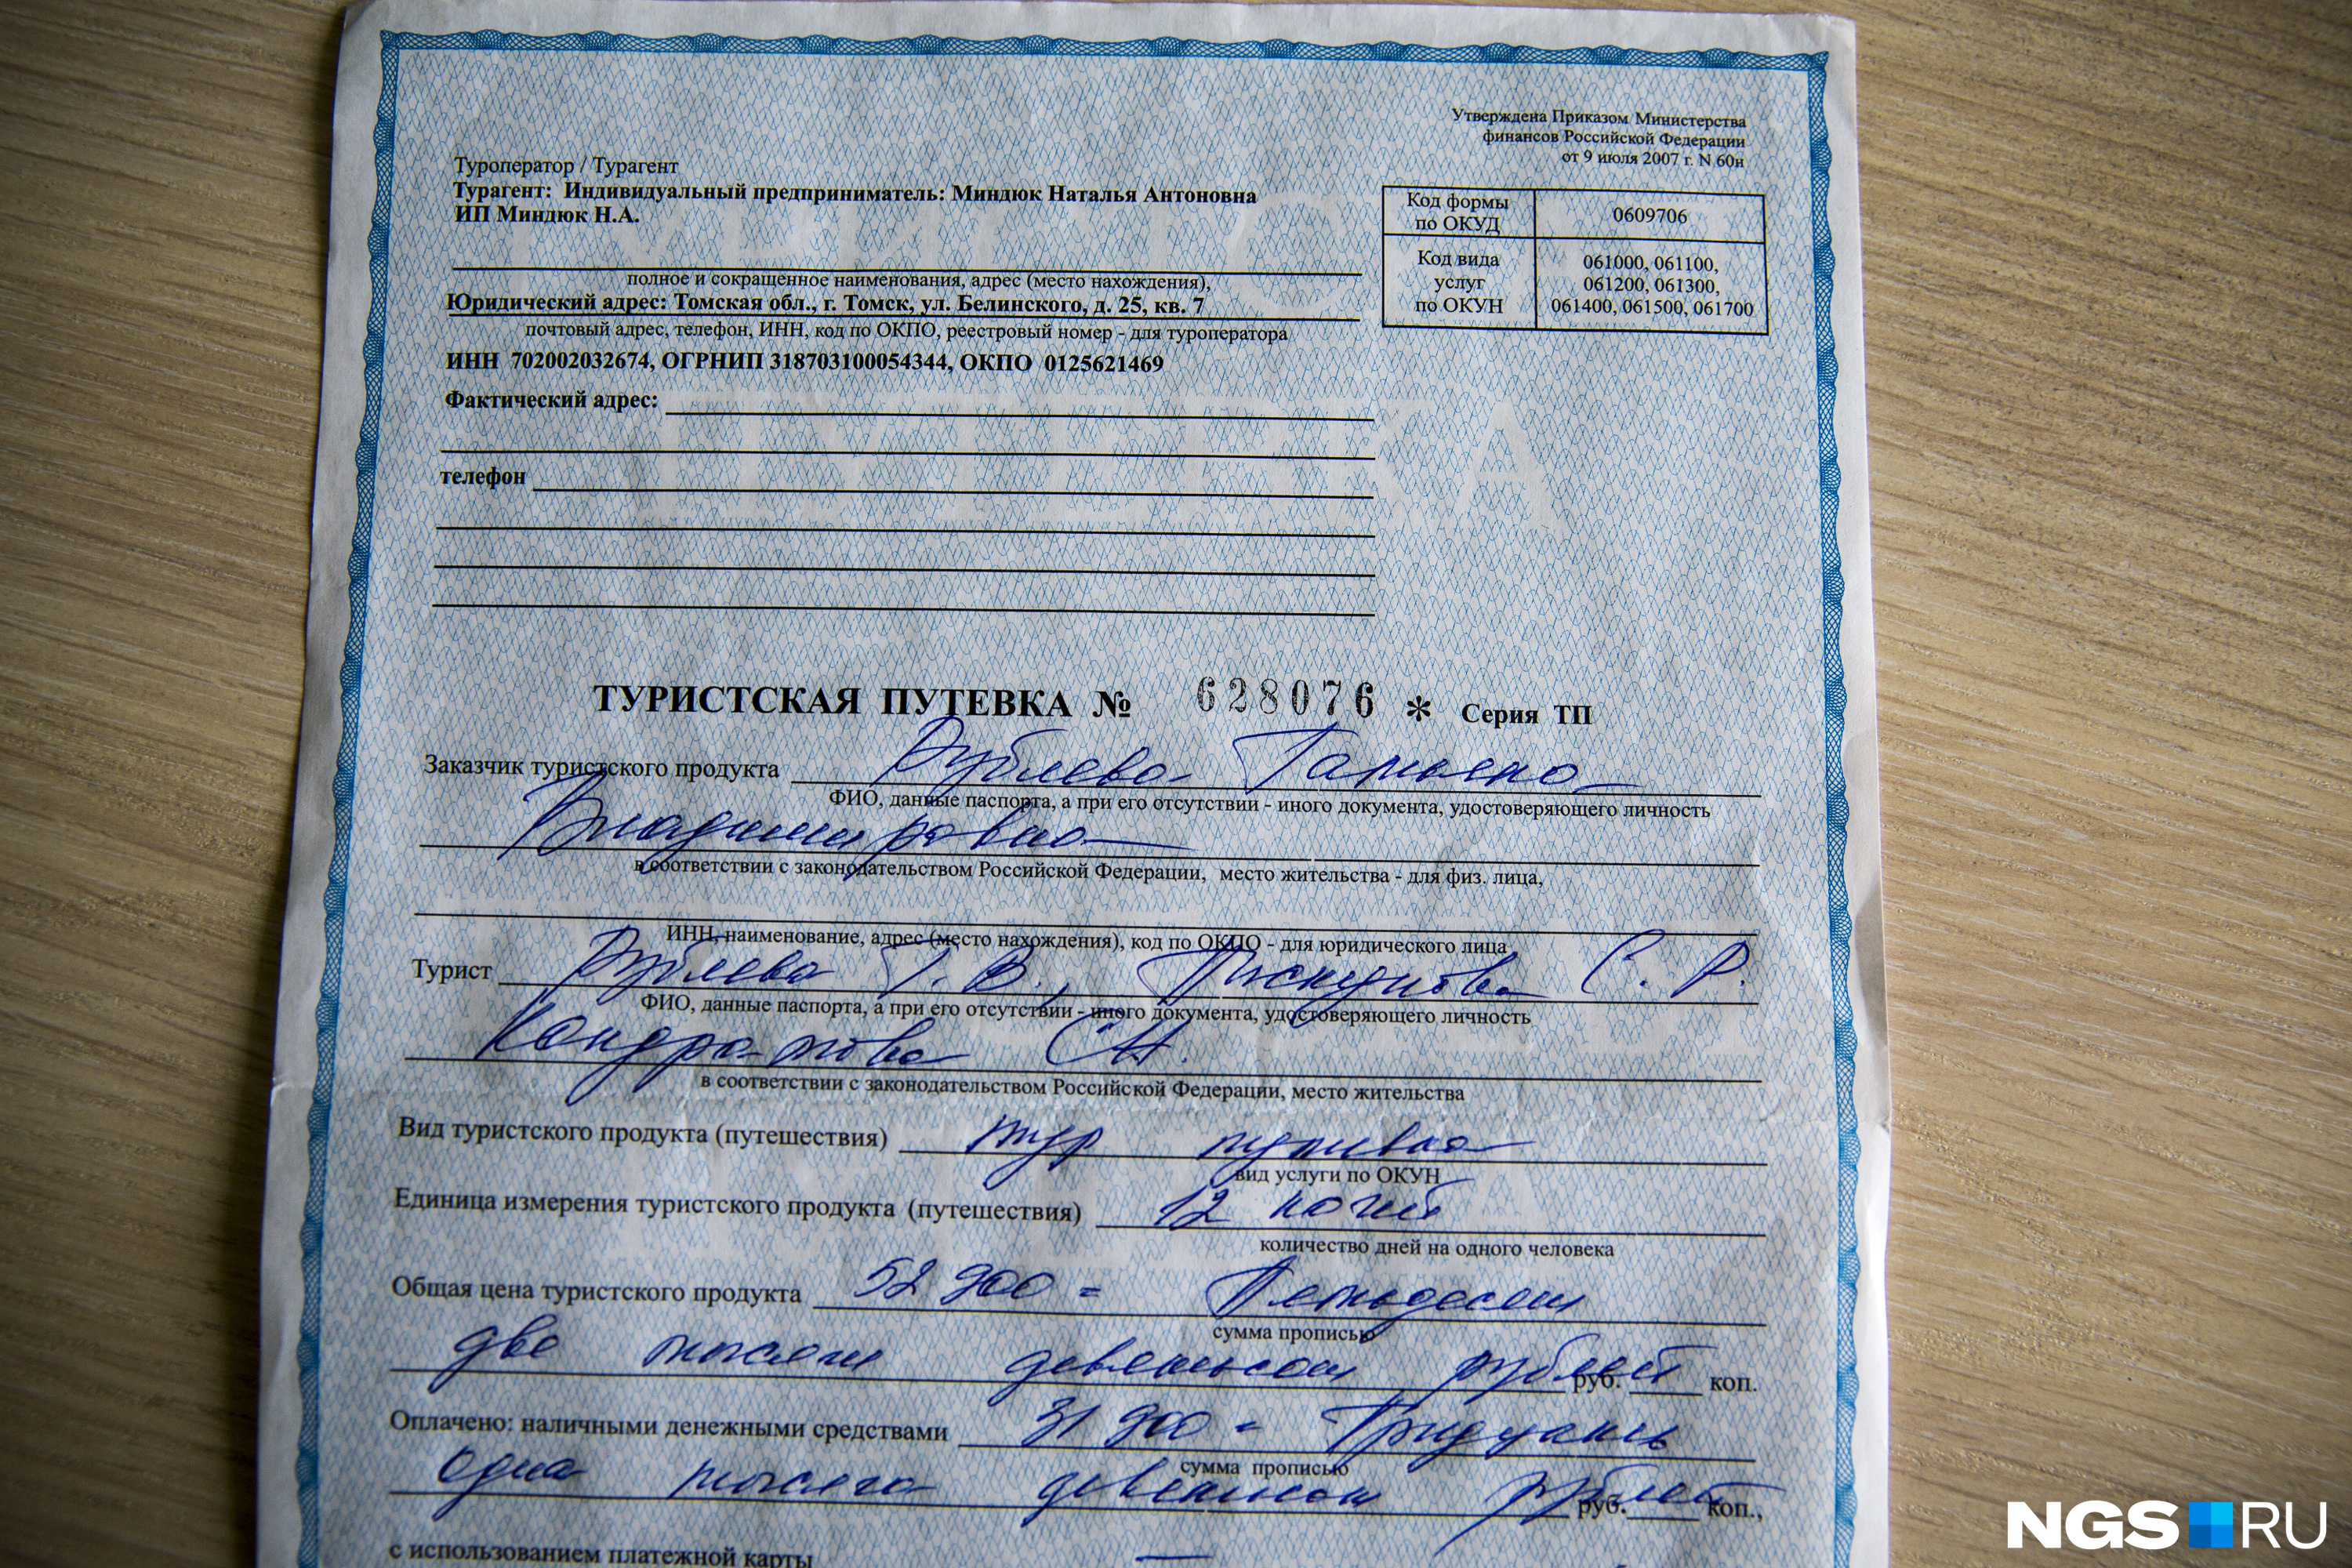 Утверждена Приказом Министерства
финансов Российской Федерации
от 9 июля 2007 г. N 60н
Туроператор / Турагент
Турагент: Индивидуальный предприниматель: Миндюк Наталья Антоновна
ИП Миндюк Н.А.
Код формы по ОКУД 0609706
Код вида услуг по ОКУН 061000, 061100, 061200, 061300, 061400, 061500, 061700
полное и сокращенное наименования, адрес (место нахождения),
Юридический адрес: Томская обл., г. Томск, ул. Белинского, д. 25, кв. 7
почтовый адрес, телефон, ИНН, код по ОКПО, реестровый номер - для туроператора
ИНН 702002032674, ОГРНИП 318703100054344, ОКПО 0125621469
Фактический адрес:
телефон
ТУРИСТСКАЯ ПУТЕВКА № 628076 * Серия ТП
Заказчик туристского продукта Рублева Татьяна
ФИО, данные паспорта, а при его отсутствии - иного документа, удостоверяющего личность
Владимировна
в соответствии с законодательством Российской Федерации, место жительства - для физ. лица,
ИНН, наименование, адрес (место нахождения), код по ОКПО - для юридического лица
Турист Рублева Т. В., Пискунова С. Р.
ФИО, данные паспорта, а при его отсутствии - иного документа, удостоверяющего личность
Кондратова С.Н.
в соответствии с законодательством Российской Федерации, место жительства
Вид туристского продукта (путешествия) тур путивка
вид услуги по ОКУН
Единица измерения туристского продукта (путешествия) 12 ночей
количество дней на одного человека
Общая цена туристского продукта 52 900 = Пятьдесят
сумма прописью
две тысячи девятьсот рублей руб. коп.
Оплачено: наличными денежными средствами 31 900 = Тридцать
сумма прописью
одна тысяча девятьсот рублей руб. коп.,
с использованием платежной карты —
NGS RU